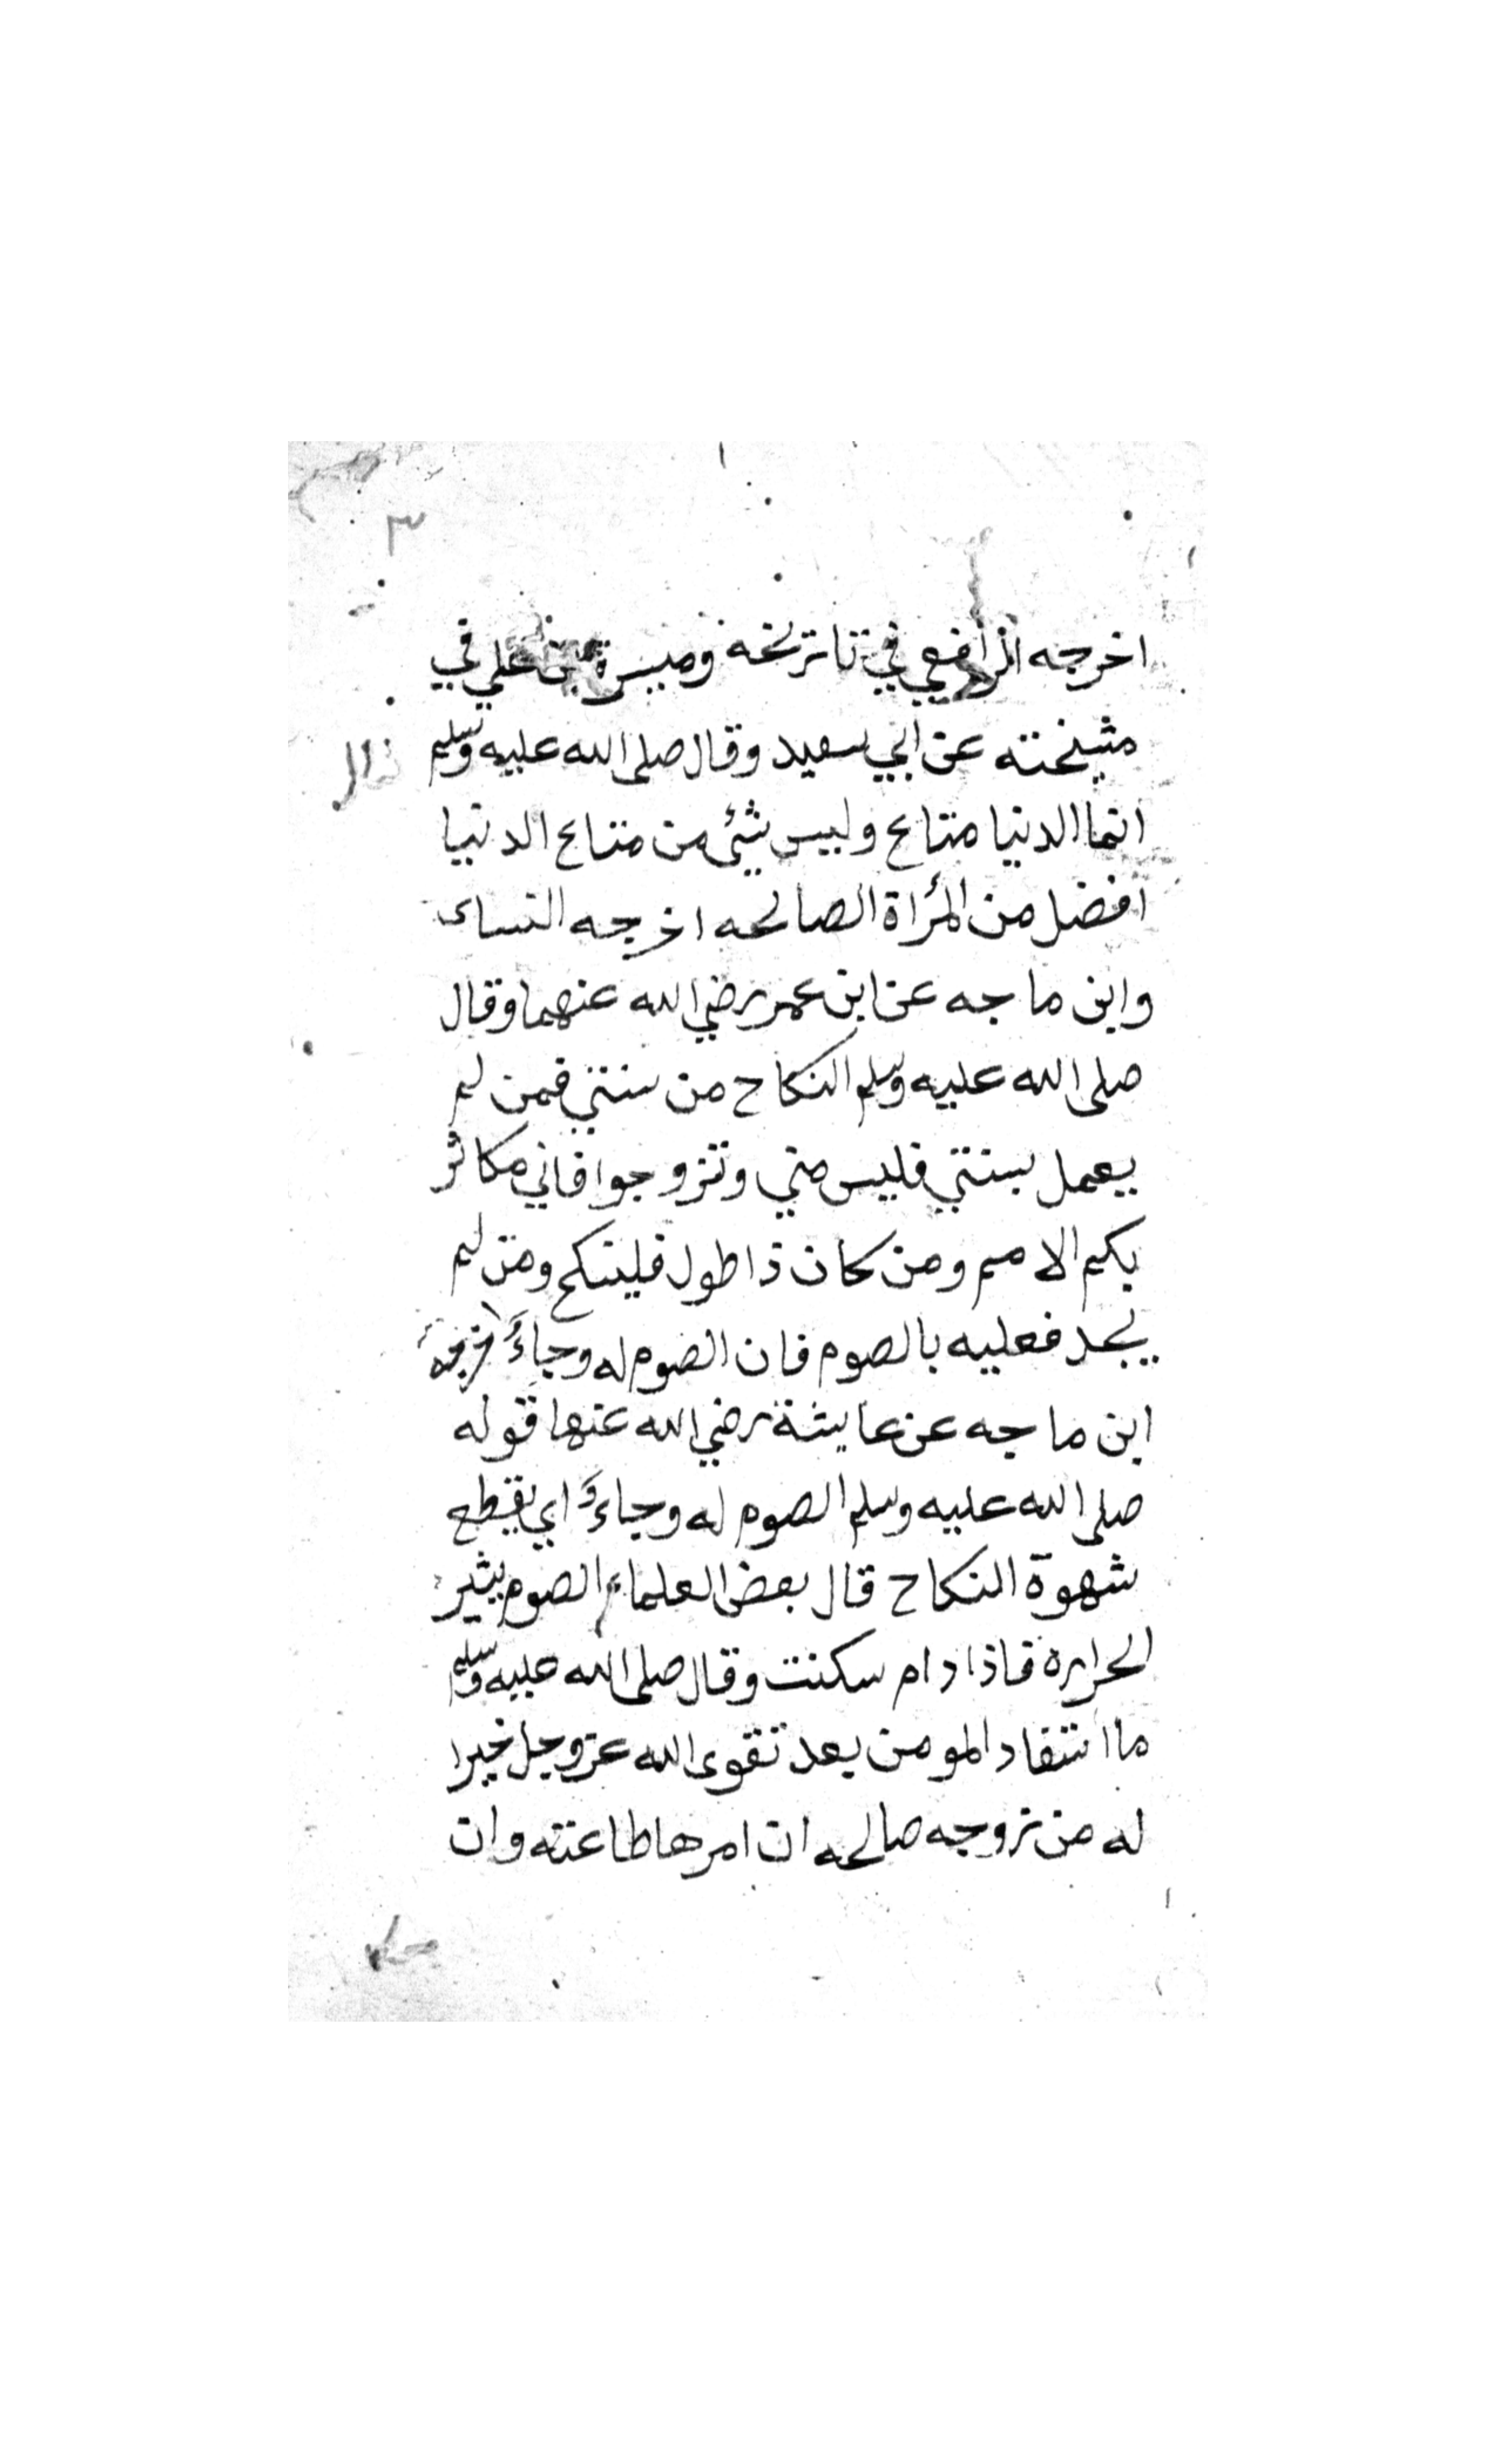 ٣
اخرجه الرافعي في تاريخه وميسرة بن علي في
مشيخته عن ابي سعيد وقال صلى الله عليه وسلم
انما الدنيا متاع وليس شئ من متاع الدنيا
افضل من المرأة الصالحه اخرجه النساى
وابن ماجه عن ابن عمر رضي الله عنهما وقال
صلى الله عليه وسلم النكاح من سنتي فمن لم
يعمل بسنتي فليس مني وتزوجوا فاني مكاثر
بكم الامم ومن كان ذا طول فلينكح ومن لم
يجد فعليه بالصوم فان الصوم له وجاءٌ اخرجه
ابن ماجه عن عايشة رضي الله عنها قوله
صلى الله عليه وسلم الصوم له وجاءٌ اي يقطع
شهوة النكاح قال بعض العلماء الصوم يثير
الحرارة فاذا دام سكنت وقال صلى الله عليه وسلم
ما استفاد المومن بعد تقوى الله عز وجل خيرا
له من زوجه صالحه ان امرها طاعته وان